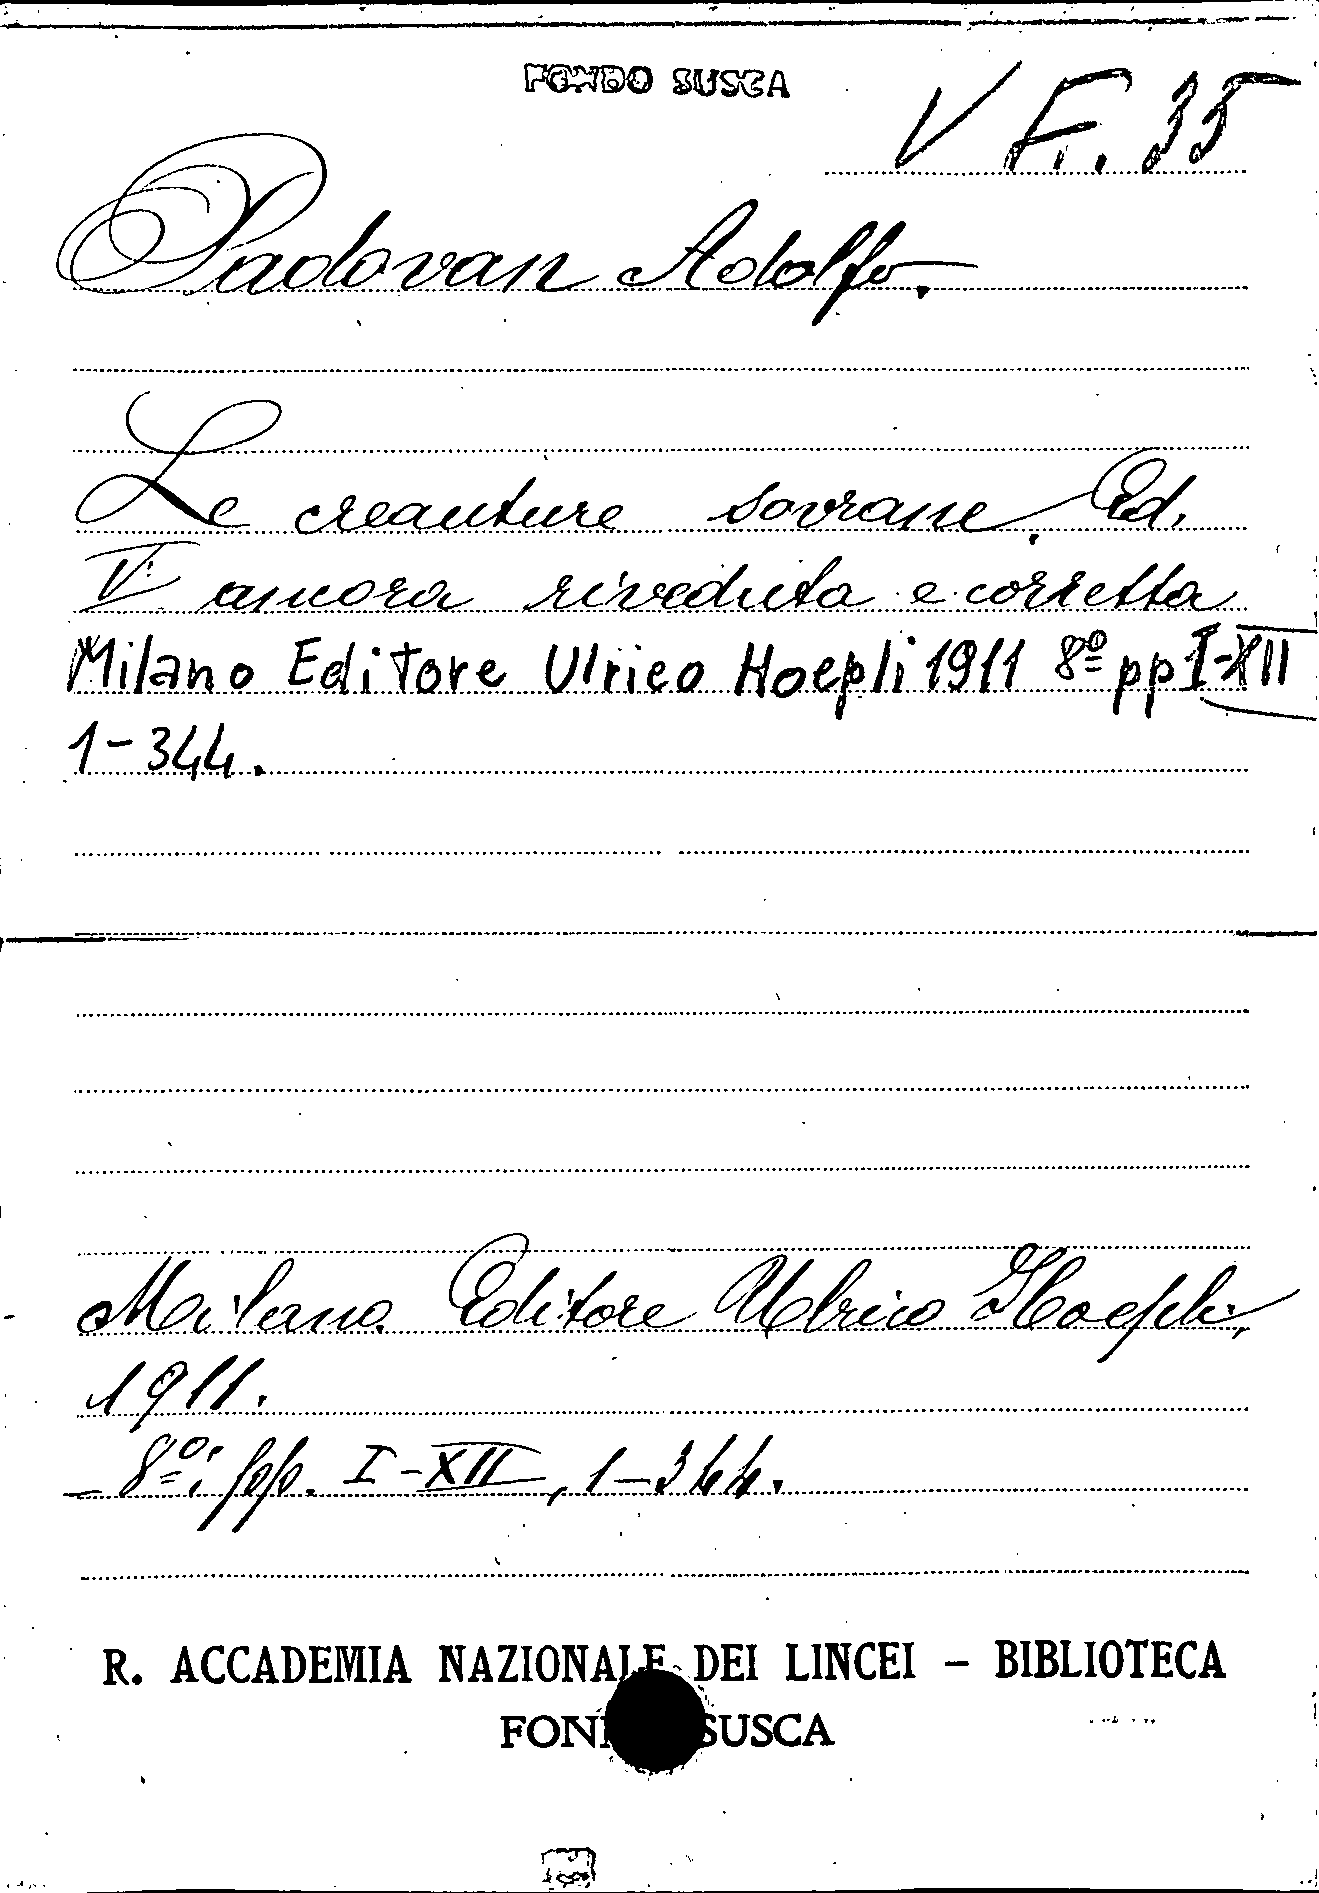 FONDO SUSCA
V F. 35
Padovan Adolfo.
Le creature sovrane. Ed.
V ancora riveduta e corretta
Milano Editore Ulrico Hoepli 1911 8º pp I-XII
1-344.
Milano. Editore Ulrico Hoepli,
1911.
- 8º; pp. I-XII, 1-344.
R. ACCADEMIA NAZIONALE DEI LINCEI - BIBLIOTECA
SUSCA